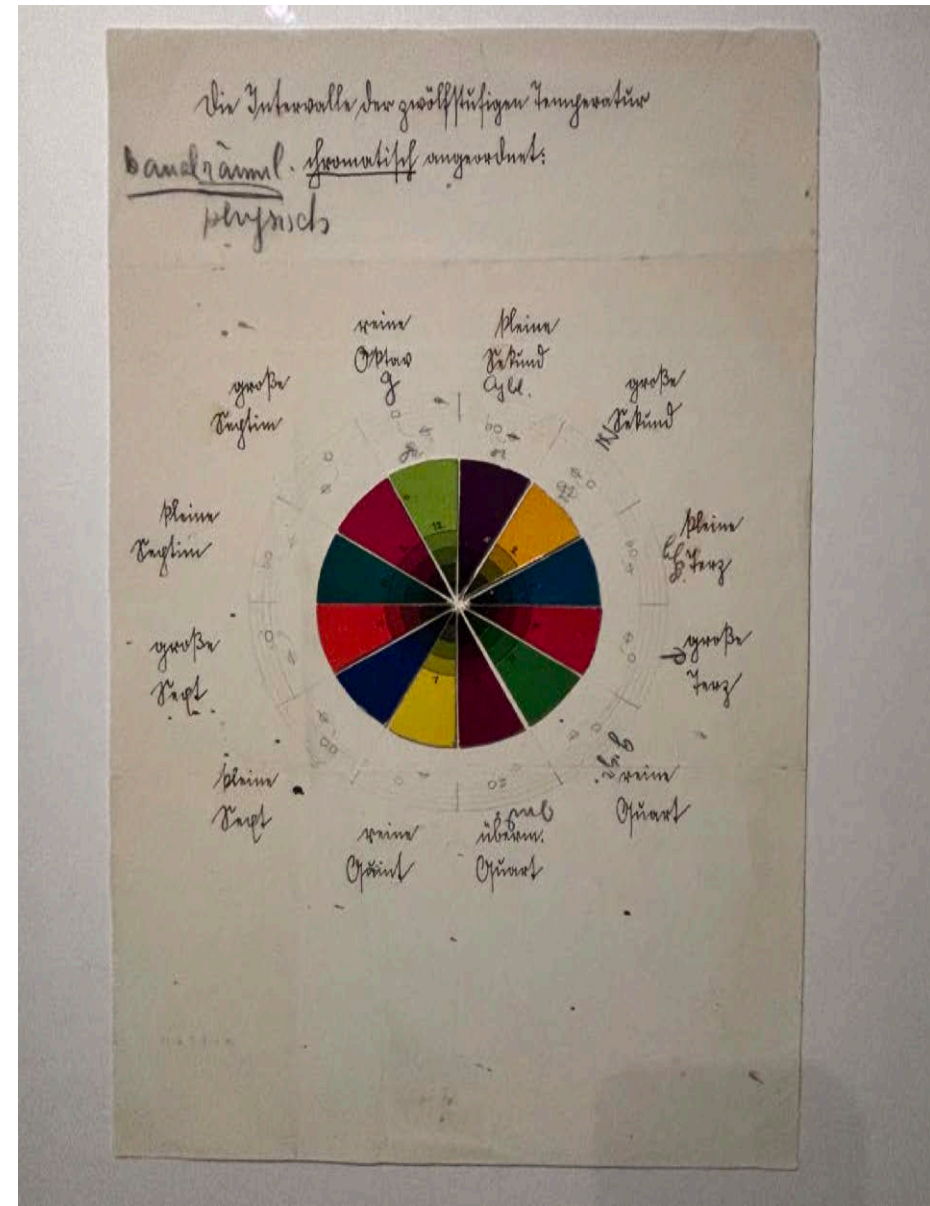 Die Intervalle der zwölfstufigen Temperatur
chromatisch angeordnet:
physisch
reine
Oktav
g
kleine
Sekund
große
Sekund
kleine
Terz
große
Terz
reine
Quart
überm.
Quart
reine
Quint
kleine
Sext
große
Sext
kleine
Septim
große
Septim
12
2
7